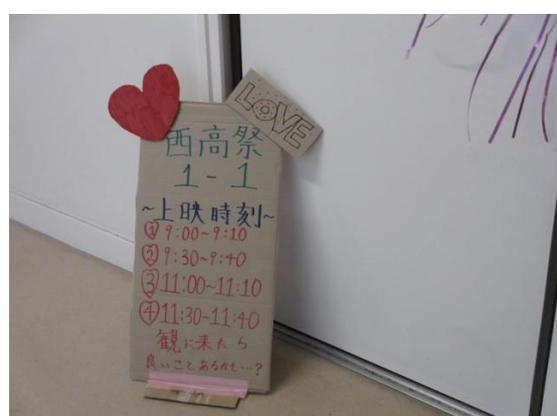 LOVE
西高祭
1-1
~上映時刻~
① 9:00~9:10
② 9:30~9:40
③ 11:00~11:10
④ 11:30-11:40
観に来たら
良いことあるかも…?